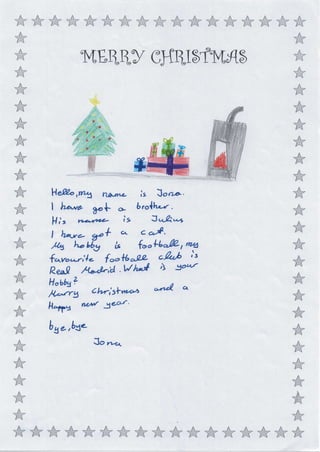 MERRY CHRISTMAS
Hello, my name is Jona.
I have got a brother.
His name is Julius
I have got a cat.
My hobby is football, my
favourite football club is
Real Madrid. What is your
Hobby?
Marry Christmas and a
Happy new year.
bye, bye
Jona